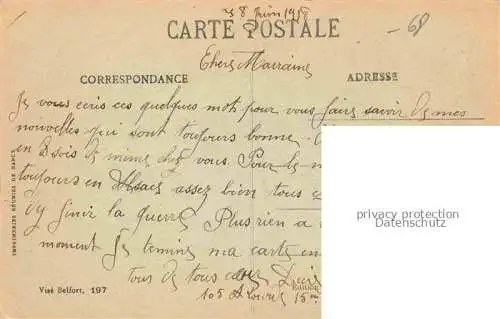 8 Juin 191
68
CARTE POSTALE
Chers Marraine
CORRESPONDANCE
ADRESSE
Je vous ecris ces quelques mot pour vous faire savoir de mes
nouvelles qui sont toujours bonne.
en soit de même chez vous. Pour le
toujours en Alsace assez bien tous
finir la guerre Plus rien a
moment Je termine ma carte en
tous de tous
105
15
privacy protection
Datenschutz
IMPRIMERIES RÉUNIES DE NANCY
Visé Belfort, 197